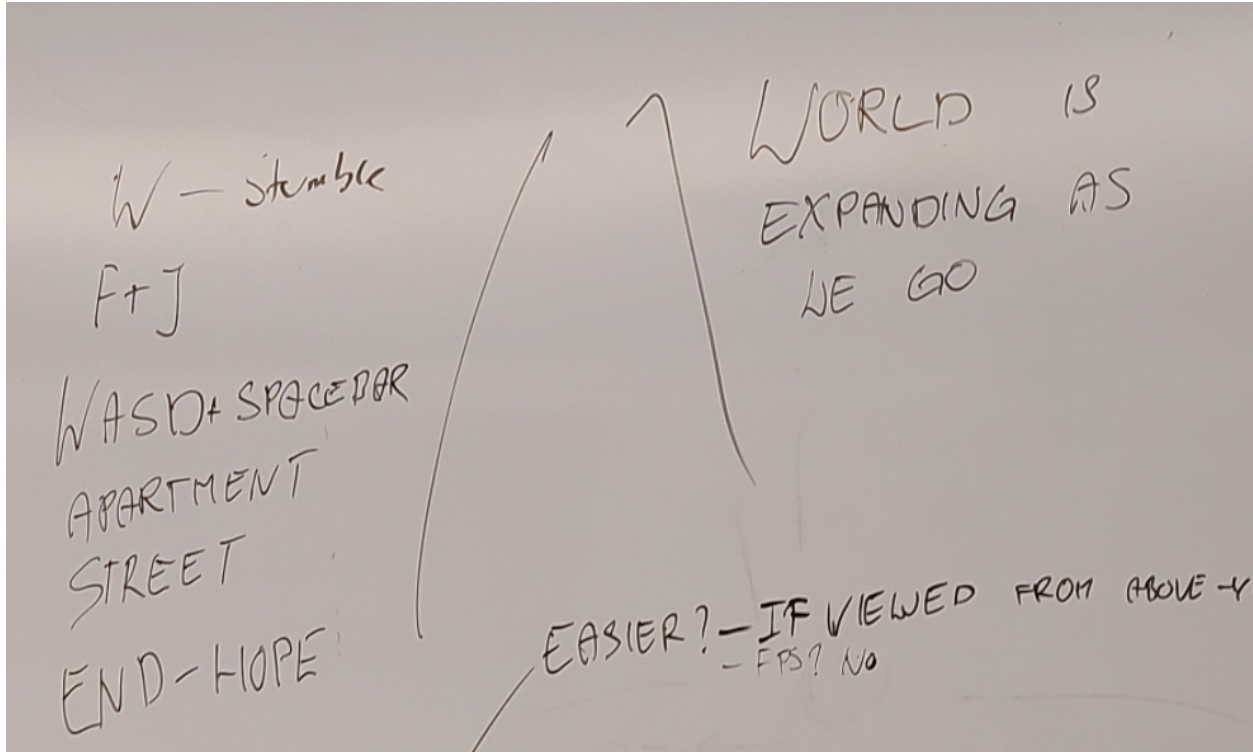 W - stumble
F+J
WASD+ SPACEBAR
APARTMENT
STREET
END-HOPE
WORLD IS
EXPANDING AS
WE GO
EASIER? - IF VIEWED FROM ABOVE - Y
- FPS? NO